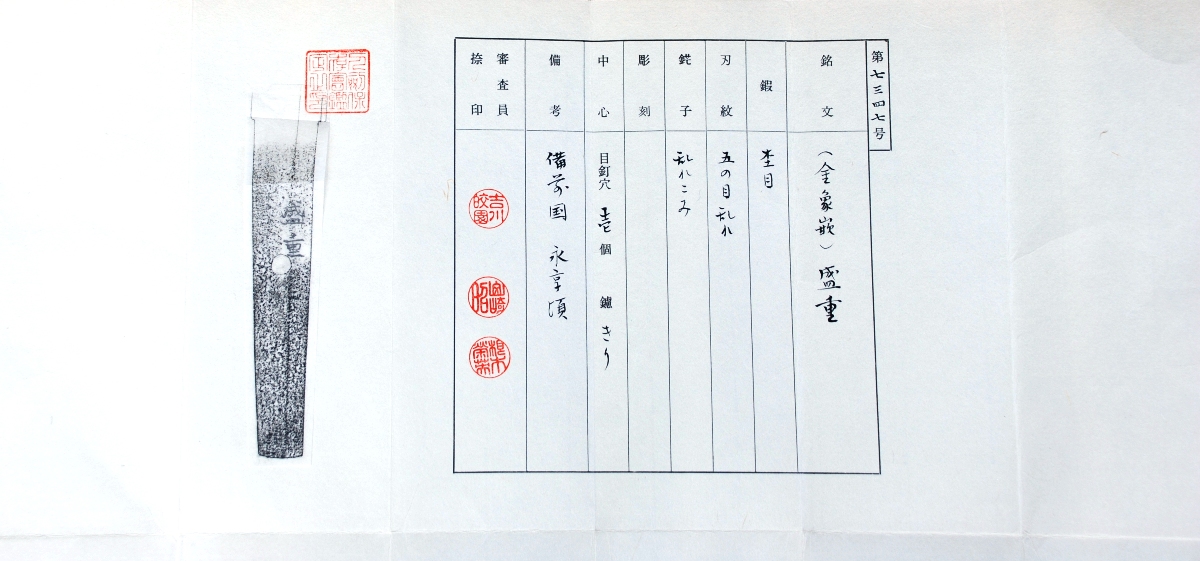 第七三四七号
銘文 (金象嵌) 盛重
鍜 杢目
刃紋 五の目乱れ
鋩子 乱れこみ
彫刻
中心 目釘穴 壱 個 鑢 きり
備考 備前国 永享頃
審査員
捺印
吉川皎園
盛重